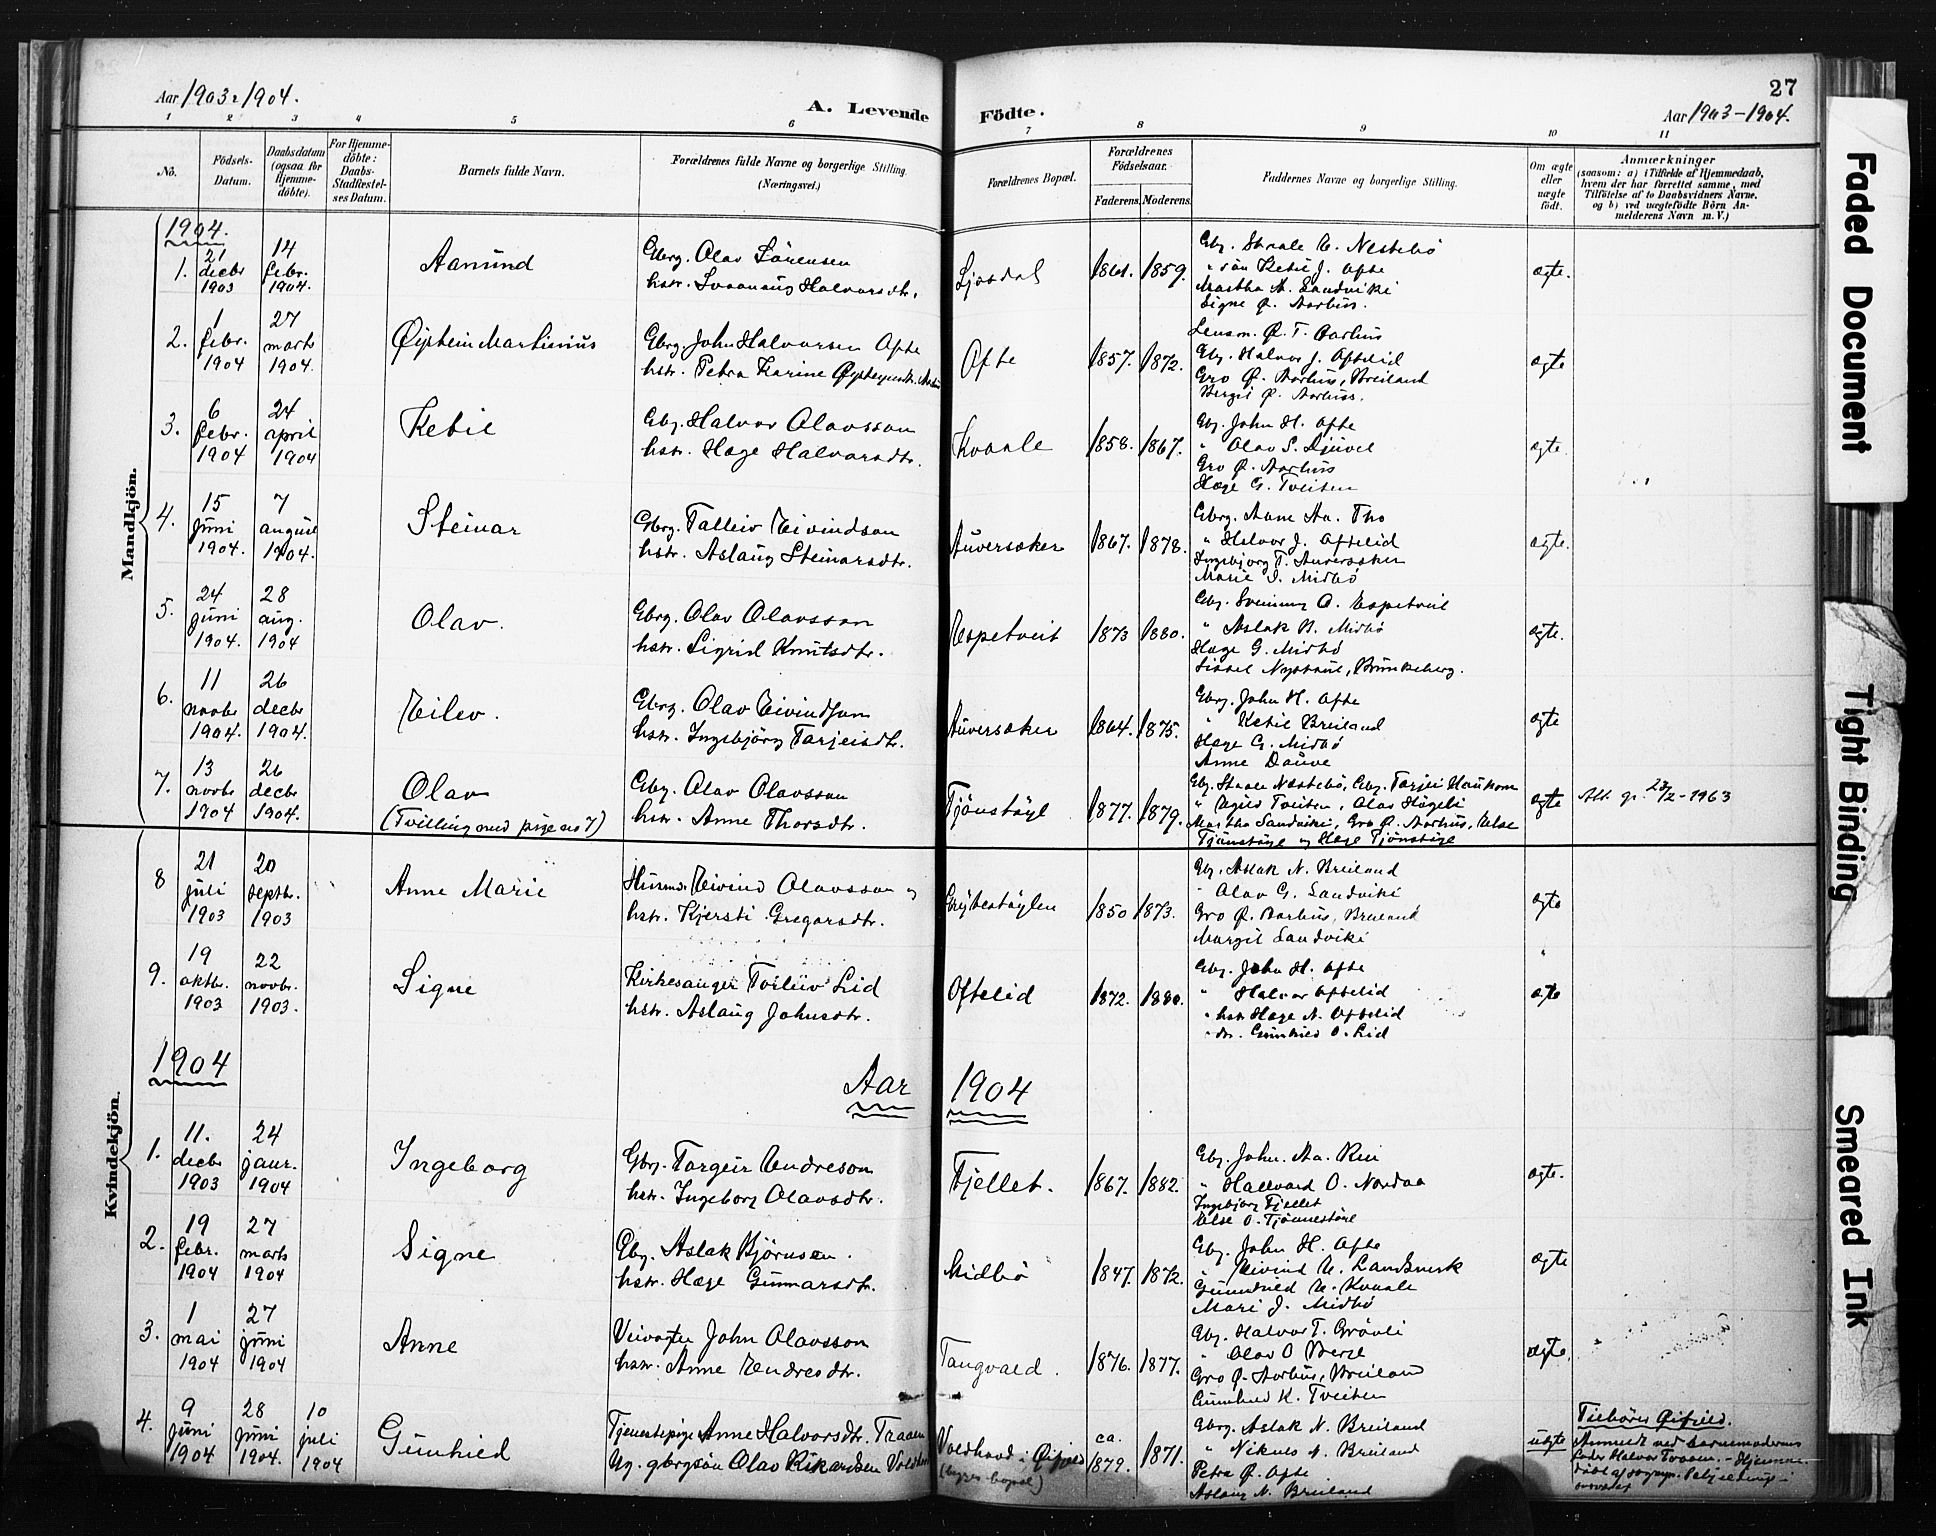 27
Aar 1903-1904.
A. Levende Födte.
Aar 1903-1904.
1 2 3 4 5 6 7 8 9 10 11
No.
Födsels-
Datum.
Daabsdatum
(ogsaa for
Hjemme-
döbte).
For Hjemme-
döbte:
Daabs-
Stadfæstel-
ses Datum.
Barnets fulde Navn.
Forældrenes fulde Navne og borgerlige Stilling.
(Næringsvei.)
Forældrenes Bopæl.
Forældrenes
Födselsaar.
Faderens. Moderens.
Faddernes Navne og borgerlige Stilling.
Om ægte
eller
uægte
födt.
Anmærkninger
(saasom: a) i Tilfælde af Hjemmedaab,
hvem der har forrettet samme, med
Tilföielse af to Daabsvidners Navne,
og b) ved uægtefödte Börn An-
melderens Navn m. V.)
Mandkjön.
1904.
1.
21
decbr
1903
14
febr.
1904.
Aamund
Gbrg. Olav Sörensen
hstr. Halvorsdtr.
Ljosdal
1861. 1859.
Gbg. Staale O. Nestebø
Ketil J. Ofte
Martha A. Sandviki
Signe Ø. Aarhus.
ægte.
2.
1
febr.
1904
27
marts
1904.
Øistein Martinius
Gbrg. John Halvorsen Ofte
hstr. Petra Karine
Ofte
1857. 1872.
Lensm. Ø. T. Aarhus
Gbg. Halvor J. Oftelid
Gro Ø. Aarhus, Breiland
Bergit Ø. Aarhus.
ægte
3.
6
febr.
1904
24
april
1904
Ketil
Gbg. Halvor Olavsson
hstr. Hæge Halvorsdtr.
Kvaale
1858. 1867.
Gbg. John H. Ofte
" Olav S. Djuvel
Gro Ø. Aarhus
Hæge G. Tveiten
ægte.
4.
15
juni
1904.
7
august
1904.
Steinar
Gbrg. Talleiv Eivindson
hstr. Aslaug Steinarsdtr.
Auversaker
1867. 1878.
Gbrg. Aa. Tho
" Halvor J. Oftelid
Ingebjorg T. Auversaker
Marie J. Midbø
ægte.
5.
24
juni
1904.
28
aug.
1904
Olav.
Gbrg. Olav Olavsson
hstr. Sigrid Knutsdtr.
Espetveit
1873 1880.
Gbg. O. Espetveit
" Aslak B. Midbø
Hæge G. Midbø
Sissel Nystaul, Brunkeberg.
ægte.
6.
11
novbr
1904.
26
decbr
1904.
Eilev.
Gbrg. Olav Eivindson
hstr. Ingebjörg Tarjeisdtr.
Auversaker
1864. 1875.
Gbrg. John H. Ofte
" Ketil Breiland
Hæge G. Midbø
Anne Dauve
ægte
7.
13
novbr
1904
26
decbr
1904.
Olav
(Tvilling med pige no 7)
Gbg. Olav Olavsson
hstr. Anne Thorsdtr.
Tjönstöyl
1877. 1879.
Gbg. Staale Nestebö, Gbg. Tarjei Haukom
" Tveiten, Olav Högeli
Martha Sandviki, Gro Ø. Aarhus, Else
Tjönstöyl og Hæge Tjönstöyl
ægte
Att. gr. 23/2-1963
Kvindekjön.
8
21
juli
1903
20
septbr.
1903
Anne Marie
Husmd. Eivind Olavsson og
hstr. Kjersti Gregarsdtr.
1850 1873.
Gbg. Aslak N. Breiland
" Olav G. Sandviki
Gro Ø. Aarhus, Breiland
Margit Sandviki
ægte
9.
19
oktbr.
1903
22
novbr.
1903.
Signe
Kirkesanger Torleiv Lid
hstr. Aslaug Johnsdtr.
Oftelid
1872. 1880.
Gbg. John H. Ofte
" Halvor Oftelid
" hstr Hæge N. Oftelid
" Gunhild O. Lid
ægte
1904
Aar 1904
1.
11.
decbr
1903
24
januar.
1904
Ingeborg
Gbrg. Torgeir Endreson
hstr. Ingeborg Olavsdtr.
Fjellet.
1867. 1882.
Gbg. John. Aa. Rui
" Hallvard O. Nordaa
Ingebjorg Fjellet
Else O. Tjönnestöyl
ægte.
2.
19
febr.
1904
27
marts
1904
Signe
Gbg. Aslak Björnsen.
hstr. Hæge Gunnarsdtr.
Midbö
1847. 1872.
Gbg. John H. Ofte
" Eivind O. Landsverk
Gunhild O. Kvaale
Mari J. Midbö
ægte
3.
1
mai
1904
27
juni
1904
Anne
Veivogter John Olavsson
hstr. Anne Endresdtr.
Tangvald.
1876. 1877.
Gbg. Halvor T. Grövli
" Olav O Berge
Gro Ø. Aarhus, Breiland
Gunhild K. Tveiten
ægte,
4.
9
juni
1904
28
juni
1904.
10
juli
1904
Gunhild
Tjenestepige Anne Halvorsdtr. Traaen
Ug. gbrgsön Olav Rikardsen
Voldhovd i Øifjeld
ca.
1879. 1871.
Gbrg. Aslak N. Breiland
" Nikuls N. Breiland
Petra Ø. Ofte
Aslaug N. Breiland
uægte
Tilhörer Øifjeld.
Anmeldt ved barnemoderens
fader Halvor Traaen. - Hjemme-
döbt af sogn
Faded Document
Tight Binding
Smeared Ink